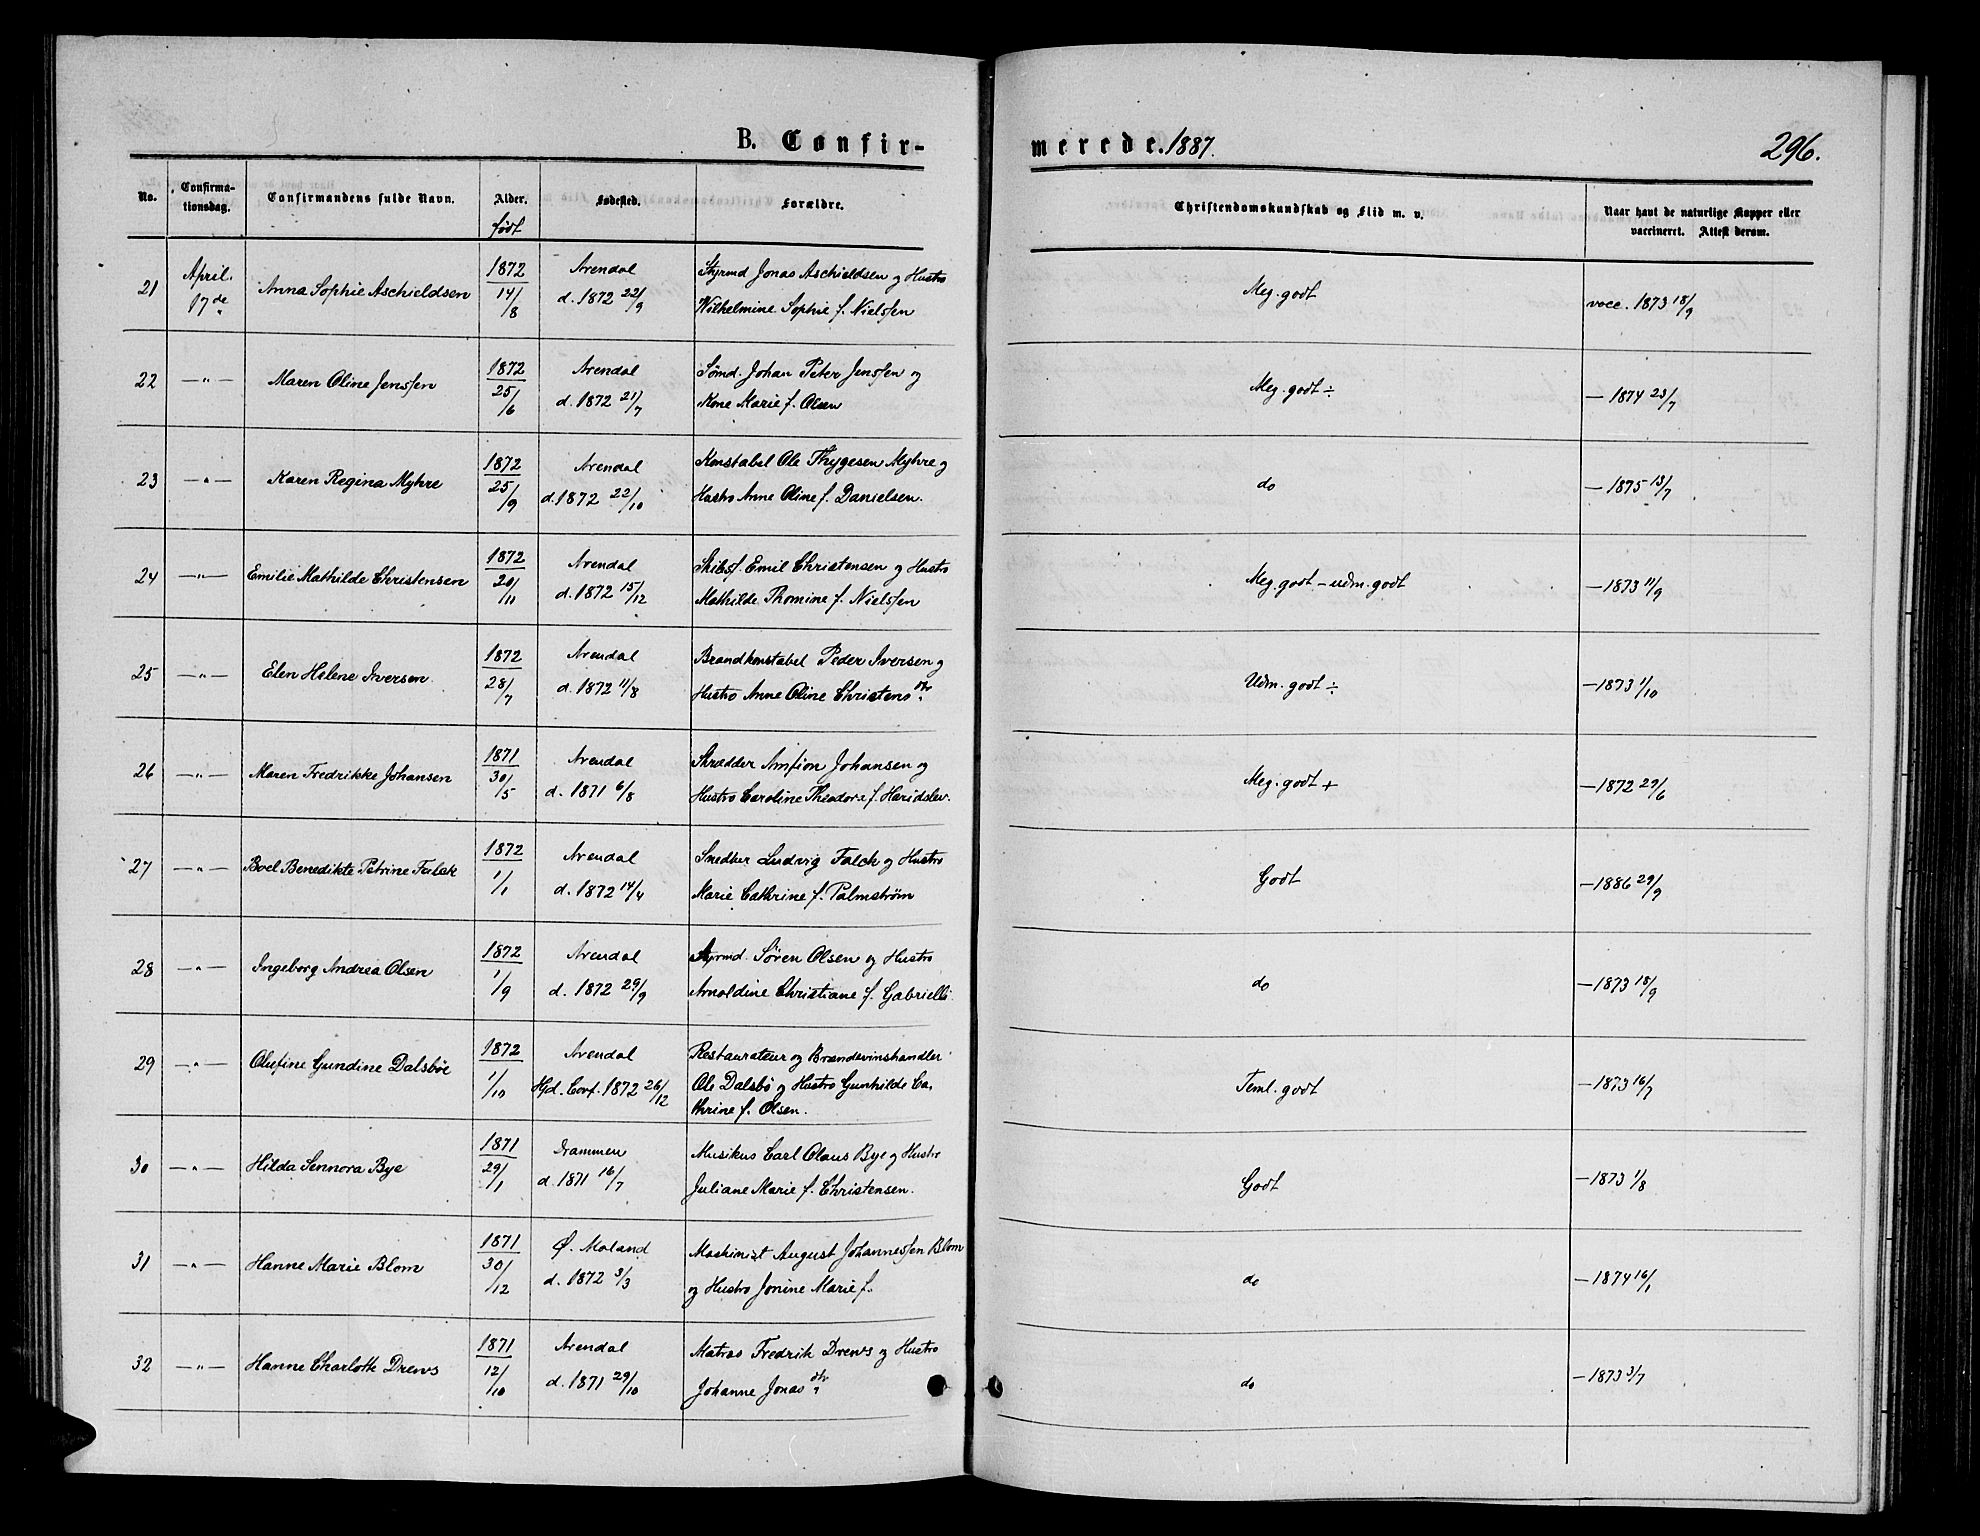 B. Confir-
merede. 1887.
296.
No.
Confirma-
tionsdag.
Confirmandens fulde Navn.
Alder.
født
Fødested.
Forældre.
Christendomskundskab og Flid m. v.
Naar havt de naturlige Kopper eller
vaccineret. Attest derom.
21 April. 17de Anna Sophie Aschieldsen 1872 14/8 Arendal d. 1872 22/9
Styrmd Jonas Aschieldsen og Hustro
Wilhelmine Sophie f. Nielsen
Meg. godt
vacc. 1873 18/9
22 —"— Maren Oline Jensen 1872 25/6 Arendal d. 1872 21/7
Sømd. Johan Peter Jensen og
Kone Marie f. Olsen
Meg. godt ÷
— 1874 23/7
23 —"— Karen Regina Myhre 1872 25/9 Arendal d. 1872 22/10
Konstabel Ole Thygesen Myhre og
Hustro Anne Oline f. Danielsen.
do
— 1875 13/7
24 —"— Emilie Mathilde Christensen 1872 20/11 Arendal d. 1872 15/12
Skibsf. Emil Christensen og Hustro
Mathilde Thomine f. Nielsen
Meg. godt – udm. godt
— 1873 11/9
25 —"— Elen Helene Iversen 1872 28/7 Arendal d. 1872 11/8
Brandkonstabel Peder Iversen og
Hustro Anne Oline Christensdtr.
Udm. godt ÷
— 1873 1/10
26 —"— Maren Fredrikke Johansen 1871 30/5 Arendal d. 1871 6/8
Skrædder Amfion Johansen og
Hustro Caroline Theodora f. Haridslev.
Meg. godt +
— 1872 29/6
27 —"— Boel Benedikte Petrine Falck 1872 1/1 Arendal d. 1872 14/4
Snedker Ludvig Falck og Hustro
Marie Cathrine f. Palmstrøm
Godt
— 1886 29/9
28 —"— Ingeborg Andrea Olsen 1872 1/9 Arendal d. 1872 29/9
Styrmd. Sören Olsen og Hustro
Arnoldine Christiane f. Gabriells.
do
— 1873 18/9
29 —"— Olufine Gundine Dalsböe 1872 1/10 Arendal Hjd. Conf. 1872 26/12
Restaurateur og Brændevinshandler
Ole Dalsbö og Hustro Gunhilde Ca,
thrine f. Olsen.
Teml. godt
— 1873 16/7
30 —"— Hilda Sennora Bye 1871 29/1 Drammen d. 1871 16/7
Musikus Carl Olaus Bye og Hustro
Juliane Marie f. Christensen.
Godt
— 1873 1/8
31 —"— Hanne Marie Blom 1871 30/12 Ø. Moland d. 1872 3/3
Maskinist August Johannesen Blom
og Hustro Jonine Marie f.
do
— 1874 16/1
32 —"— Hanne Charlotte Drews 1871 12/10 Arendal d. 1871 29/10
Matros Fredrik Drews og Hustro
Johanne Jonasdtr.
do
— 1873 3/7